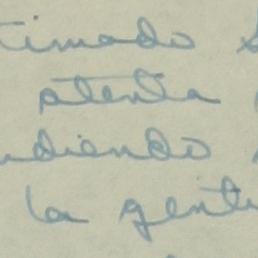 timado S
atenta
udiendo
la gent